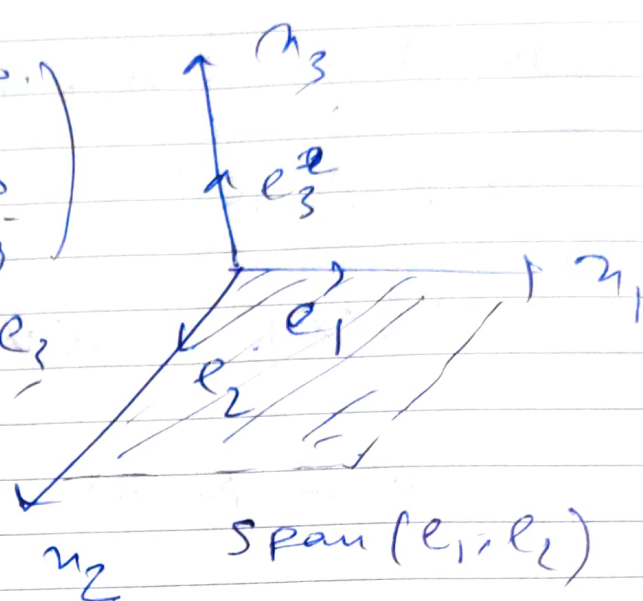 x₃
e₃
x₁
e₁
e₃
e₂
x₂
span(e₁, e₂)